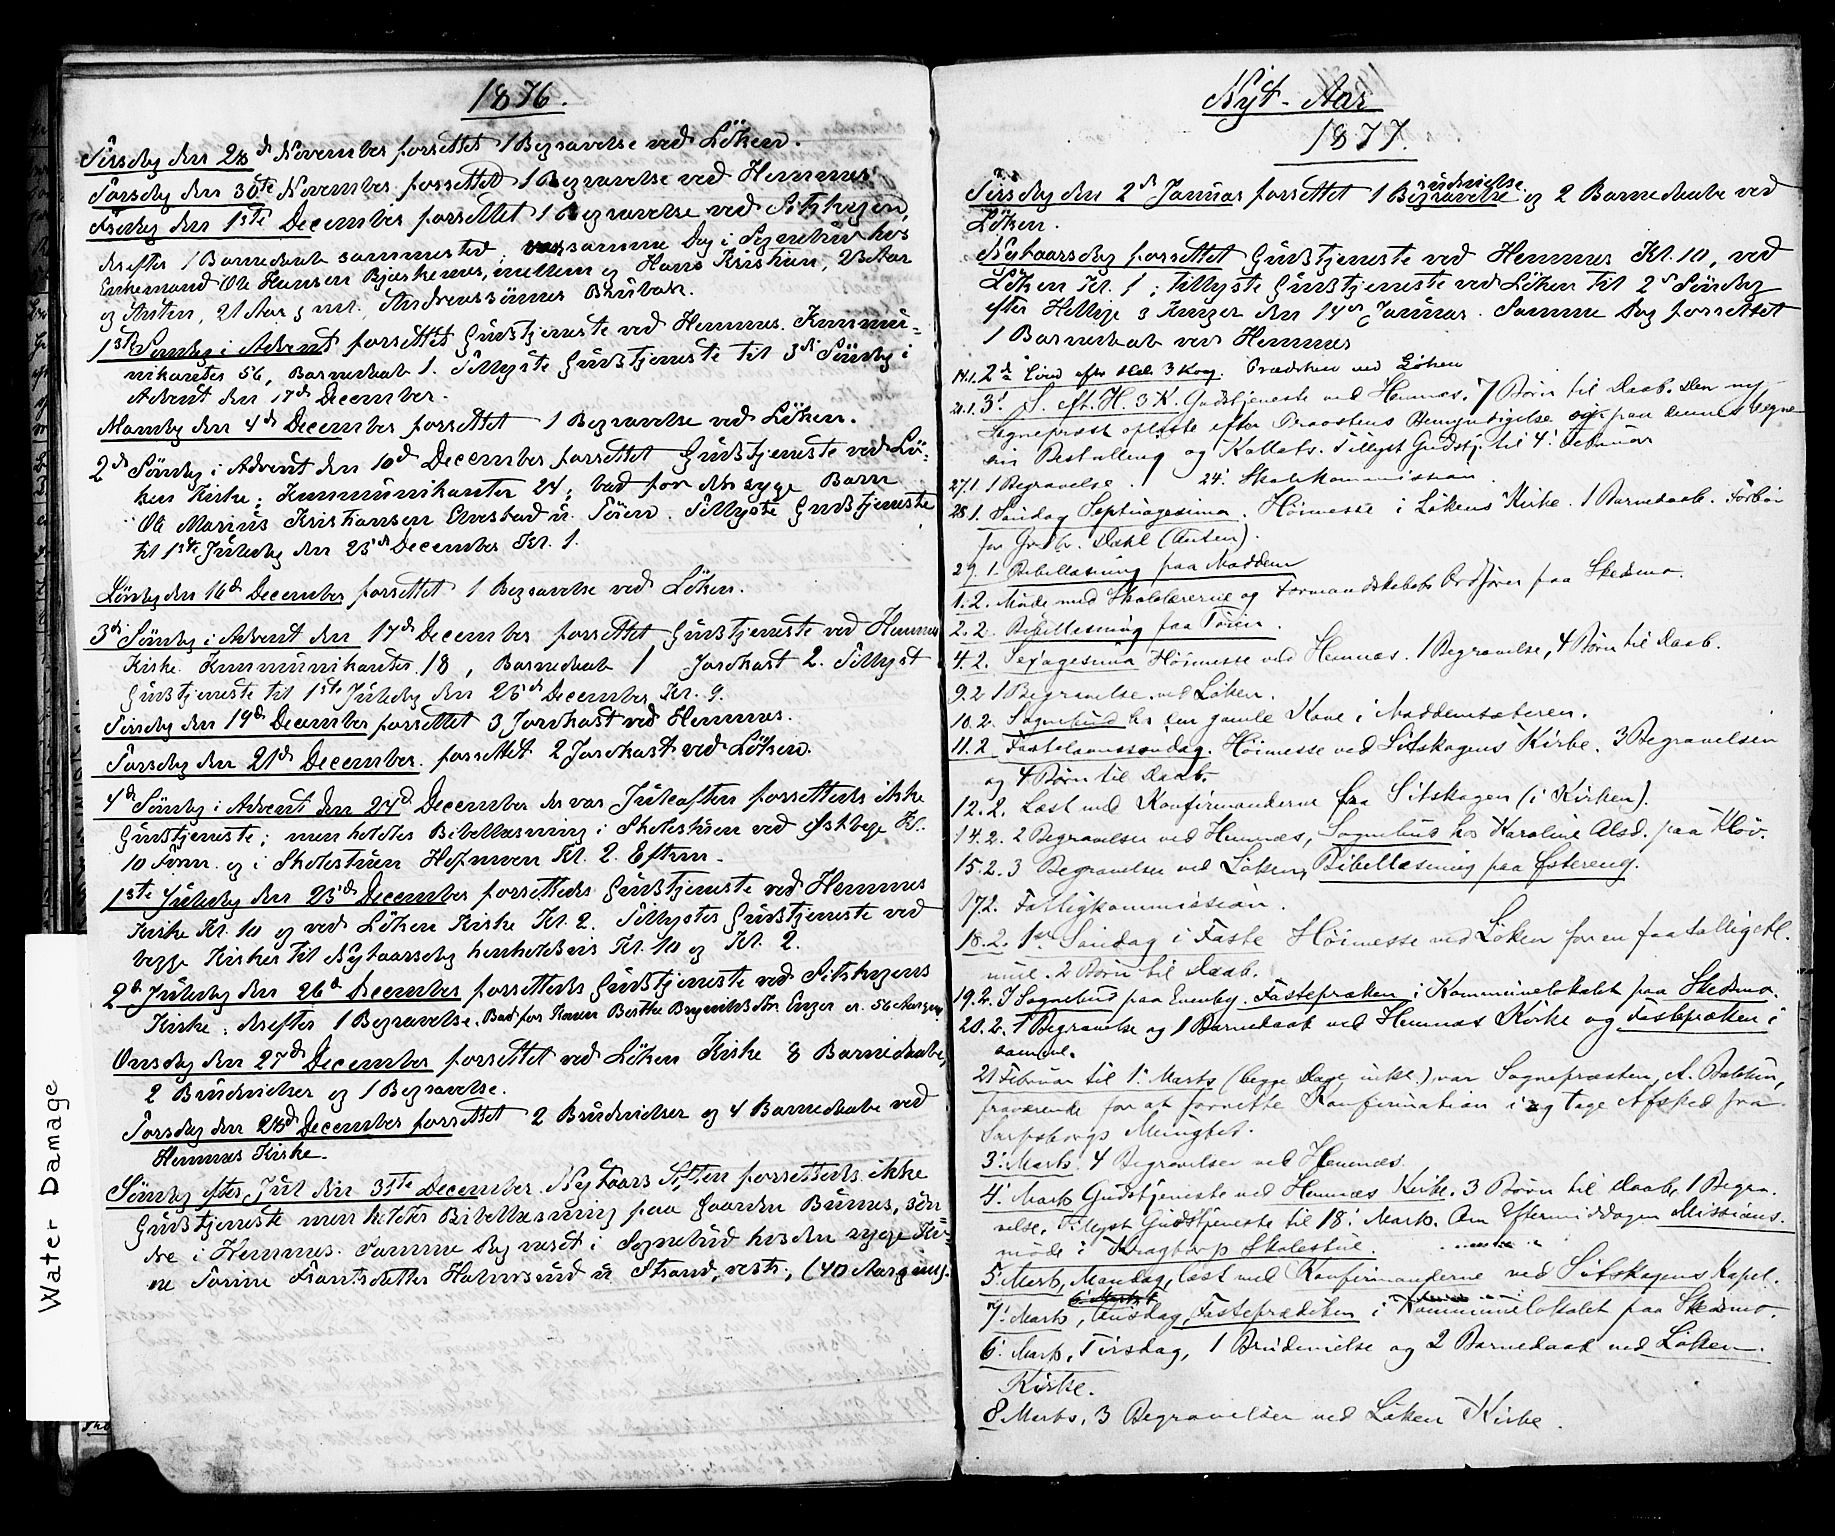 1876.
Tirsdag den 28d November forrettet 1 Begravelse ved Löken.
Torsdag den 30te November forrettet 1 Begravelse ved Hemnæs
Fredag den 1ste December forrettet 1 Begravelse ved Sitskogen,
derefter 1 Barnedaab sammested; samme Dag i Sognebud hos
Enkemand Ole Hansen Bjerkenæs, mellem og Hans Kristian,
og Anten, 21 Aar g ml. Andreassönner Bråbak.
1ste Søndag i Advent forrettet Gudstjeneste ved Hemnæs. Kommu-
nikanter 56, Barnedaab 1. Tillyste Gudstjeneste til 3di Söndag i
Advent den 17d December.
Mandag den 4d December forrettet 1 Begravelse ved Löken.
2d Söndag i Advent den 10d December forrettet Gudstjeneste ved Lö-
ken Kirke; Kommunikanter 24; bad for den syge Barn
Ole Marius Kristiansen Elvestad u. Tösen. Tillyste Gudstjeneste
til 1ste Juledag den 25d December Kl. 1.
Lördag den 16d December forrettet 1 Begravelse ved Löken.
3di Söndag i Advent den 17d December forrettet Gudstjeneste ved Hemnæs
Kirke. Kommunikanter 18, Barnedaab 1 Jordkast 2. Tillyst
Gudstjeneste til 1ste Juledag den 25d December Kl. 9.
Tirsdag den 19d December forrettet 3 Jordkast ved Hemnæs.
Torsdag den 21d December forrettet 2 Jordkast ved Löken.
4d Söndag i Advent den 24d December der var Juleaften forrettedes ikke
Gudstjeneste; men holdtes Bibellæsning i Skolestuen ved Østbege Kl.
10 Form. og i Skolestuen Hofmoen Kl. 2. Efterm.
1ste Juledag den 25d December forrettedes Gudstjeneste ved Hemnæs
Kirke Kl. 10 og ved Löken Kirke Kl. 2. Tillystes Gudstjeneste ved
begge Kirker til Nytaarsdag henholdsvis Kl. 10 og Kl. 2.
2d Juledag den 26d December forrettedes Gudstjeneste ved Sitskogens
Kirke; derefter 1 Begravelse. Bad for Karen Berthe Brynildsdtr. Enger 56 Aar gml.
Onsdag den 27d December forrettet ved Löken Kirke 8 Barnedaabe,
2 Brudevielser og 1 Begravelse.
Torsdag den 28d December forrettet 2 Brudevielser og 4 Barnedaabe ved
Hemnæs Kirke.
Söndag efter Jul den 31te December Nytaars Aften forrettedes ikke
Gudstjeneste men holdtes Bibellæsning paa Gaarden Bunæs, sön-
dre i Hemnæs. Samme Dag været i Sognebud hos den syge Ko-
ne Torine Frantsdatter Holmsund u Strand, vestr, (40 Aar gml).
Nyt-Aar
1877.
Tirsdag den 2d Januar forrettet 1 Begravelse rudevielse og 2 Barnedaabe ved
Löken.
Nytaarsdag forrettet Gudstjeneste ved Hemnæs Kl. 10, ved
Löken Kl. 1; tillyste Gudstjeneste ved Löken til 2d Söndag
efter Hellige 3 Konger den 14de Januar. Samme Dag forrettet
1 Barnedaab ved Hemnæs
14.1. 2d Sönd efter Hel. 3 Kong. Prædiken ved Löken
21.1. 3' S. eft. H. 3 K. Gudstjeneste ved Hemnæs. 7 Børn til Daab. Den ny
Sogneprest oplæste efter Provstens Bemyndigelse og paa dennes Vegne
sin Bestalling og Kallsb. Tillyst Gudstj. til 4' Februar
27.1 1 Begravelse. 24' Skolekommission.
28.1. Søndag Septuagesima. Høimesse i Løkens Kirke. 1 Barnedaab. Forbøn
for Grdbr. Dahl (Anten).
29.1. Bibellæsning paa Nadden
1.2. Møde med Skolelærerne og Formandskabets Ordfører paa Skedsmo.
2.2. Bibellæsning paa Tösen.
4.2. Sexagesima Høimesse ved Hemnæs. 1 Begravelse, 4 Børn til Daab.
9.2 1 Begravelse ved Løken.
10.2. Sognebud hos en gamle Kone i Naddensæteren.
11.2. Fastelavnssøndag. Høimesse ved Sitskogens Kirke. 3 Begravelser
og 4 Børn til Daab.
12.2. Læst med Konfirmanderne fra Sitskogen (i Kirken).
14.2. 2 Begravelser ved Hemnæs, Sognebud hos Karoline Alsd. paa Kløv.
15.2. 3 Begravelser ved Løken, Bibellæsning paa Østereng.
17.2. Fattigkommission.
18.2. 1ste Søndag i Faste Høimesse ved Løken for en faatallig At.
mue. 2 Børn til Daab.
19.2. I Sognebud paa Eneby. Fastepræken i Kommunelokalet paa Skedsmo.
20.2. 1 Begravelse og 1 Barnedaab ved Hemnæs Kirke og Fastepræken i
samme.
21 Februar til 1' Marts (begge Dage inkl.) var Sognepræsten, A. Bakken,
fraværende for at forrette Konfirmation i og tage Afsked fra
Sarpsborgs Menighet.
3' Marts. 4 Begravelser ved Hemnæs.
4' Marts Gudstjeneste ved Hemnæs Kirke. 3 Børn til Daab, 1 Begra-
velse. Tillyst Gudstjeneste til 18' Marts. Om Eftermiddagen Missions-
møde i Kragtorp Skolestue.
5' Marts, Mandag, læst med Konfirmanderne ved Sitskogens Kapel.
6' Marts
7' Marts, Onsdag, Fasteprædiken i Kommunelokalet paa Skedsmo.
6' Marts, Tirsdag, 1 Brudevielse og 2 Barnedaab ved Løken
Kirke.
8 Marts, 3 Begravelser ved Løken Kirke.
Water Damage